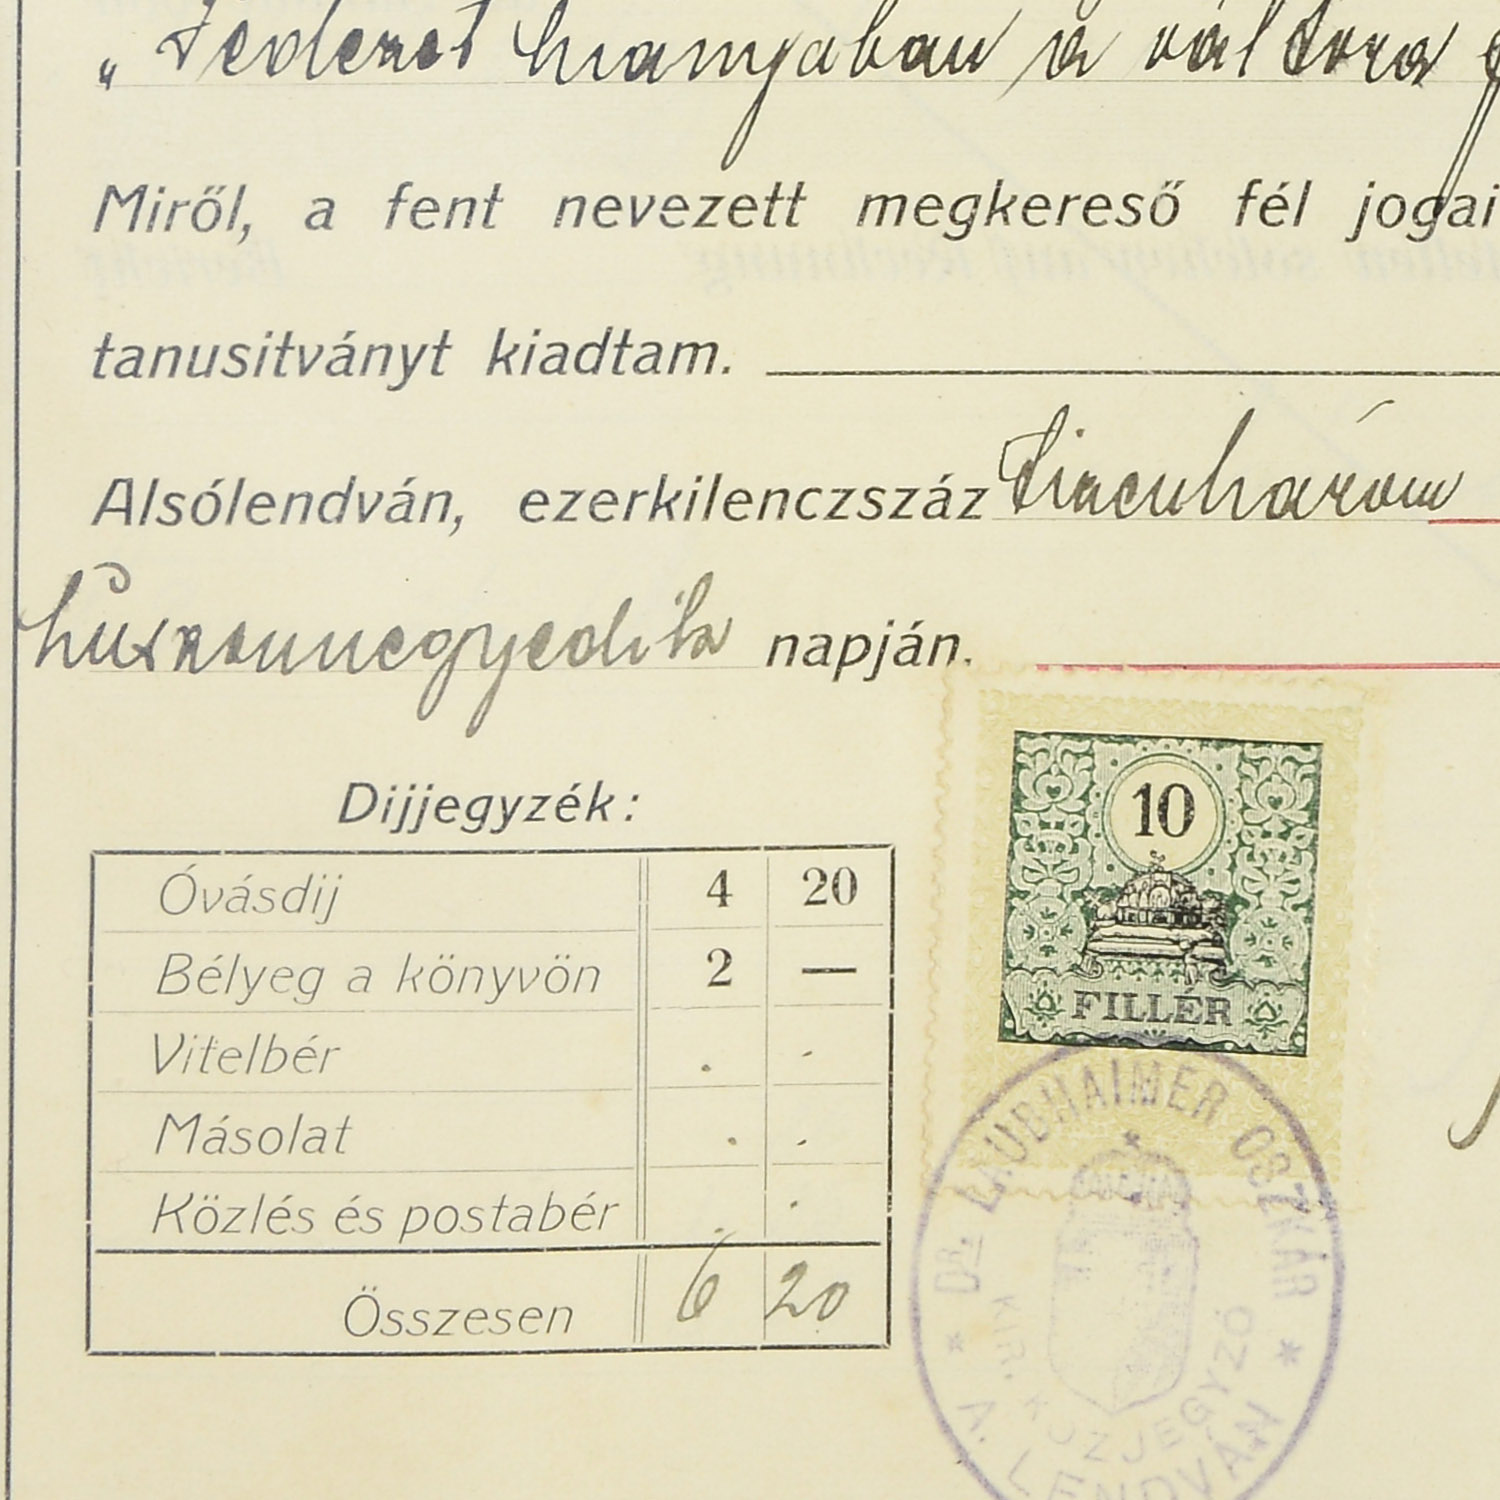 „Fedezet hiányában a váltóra
Miről, a fent nevezett megkereső fél jogai
tanusitványt kiadtam.
Alsólendván, ezerkilenczszáz tizenhárom
huszonnegyedik napján.
Dijjegyzék:
Óvásdij 4 20
Bélyeg a könyvön 2 —
Vitelbér . .
Másolat . .
Közlés és postabér . .
Összesen 6 20
10
FILLÉR
* DR. LAUBHAIMER OSZKÁR *
KIR. KÖZJEGYZŐ
A. LENDVÁN